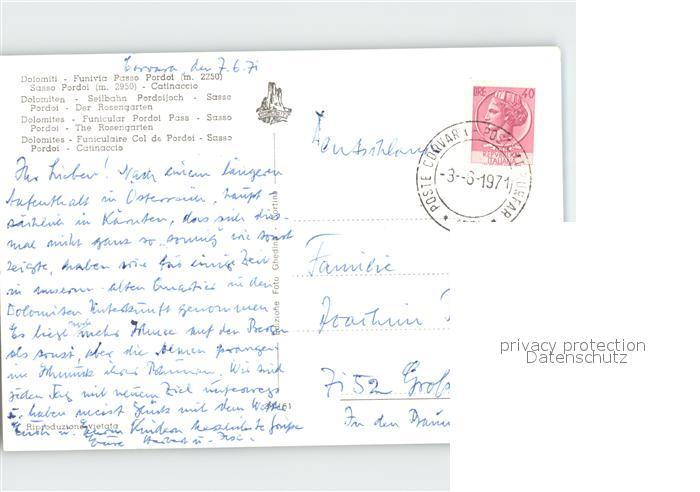 Corvara, den 7.6.71
Dolomiti - Funivia Passo Pordoi (m. 2250)
Sasso Pordoi (m. 2950) - Catinaccio
Dolomiten - Seilbahn Pordoijoch - Sasso
Pordoi - Der Rosengarten
Dolomites - Funicular Pordoi Pass - Sasso
Pordoi - The Rosengarten
Dolomites - Funiculaire Col de Pordoi - Sasso
Pordoi - Catinaccio
Ihr Lieben! Nach einem längeren
Aufenthalt in Österreich, haupt-
sächlich in Kärnten, das sich dies-
mal nicht ganz so sonnig wie sonst
zeigte, haben wir für einige Zeit
in unserem alten Quartier in den
Dolomiten Unterkunft genommen.
Es liegt mehr Schnee auf den Bergen
als sonst, aber die Wiesen prangen
im Schmuck ihrer Blumen. Wir sind
jeden Tag mit neuem Ziel unterwegs
u. haben meist Glück mit dem Wetter.
Euch u. Euren Kindern herzliche Grüße
Eure
Riproduzione vietata
Edizione Foto Ghedina - Cortina
61
LIRE 40
ITALIANA
POSTE CORVAR
-8.-6-1971
Deutschland
Familie
Joachim
7152 Groß
In den
privacy protection
Datenschutz